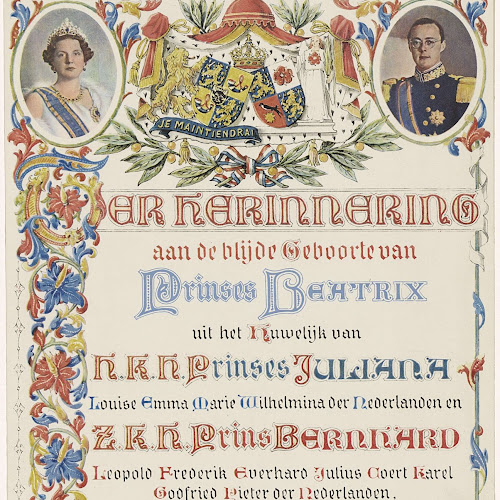 JE MAINTIENDRAI
TER HERINNERING
aan de blijde Geboorte van
Prinses BEATRIX
uit het Huwelijk van
H.K.H. Prinses JULIANA
Louise Emma Marie Wilhelmina der Nederlanden en
Z.K.H. Prins BERNHARD
Leopold Frederik Everhard Julius Coert Karel
Godfried Pieter der Nederlanden.